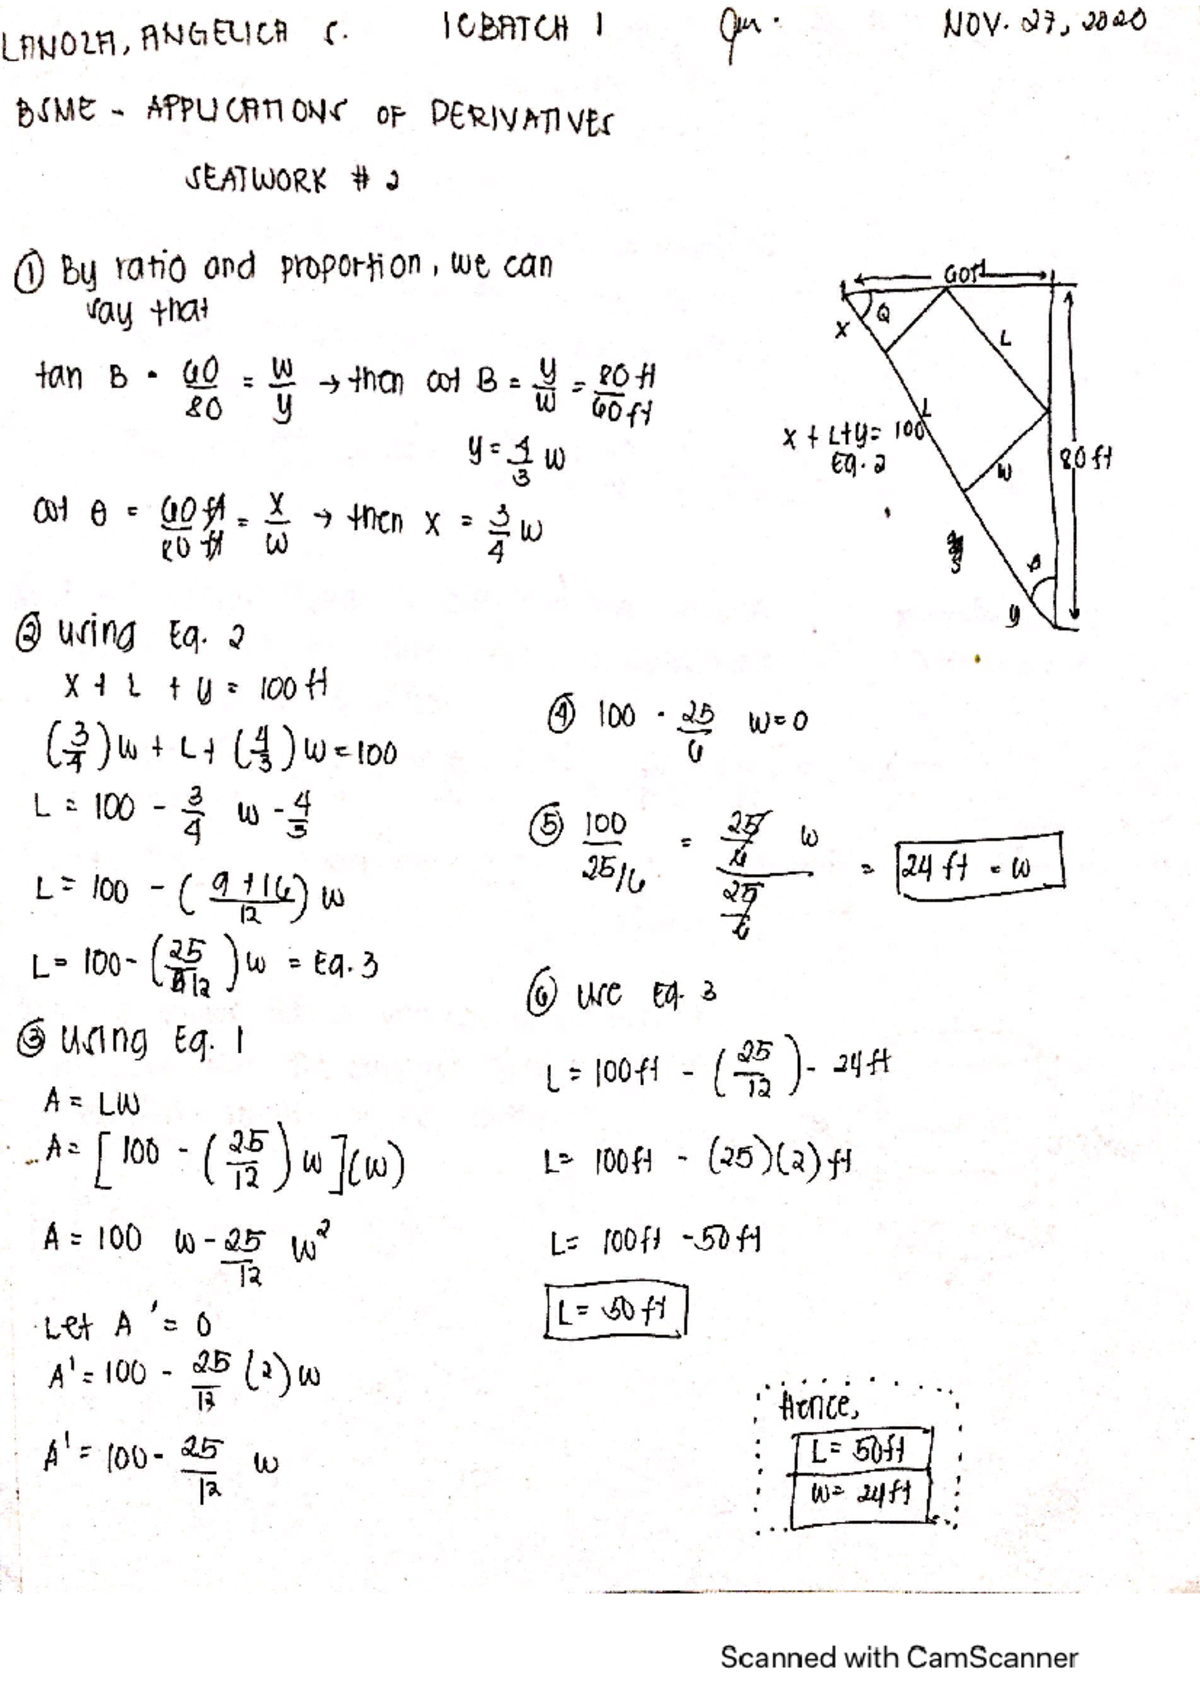 LANOZA, ANGELICA S. ICBATCH 1 NOV. 27, 2020
BSME - APPLICATIONS OF DERIVATIVES
SEATWORK # 2
① By ratio and proportion, we can
say that
tan B = 60/80 = w/y → then cot B = y/w = 80 ft/60 ft
y = 4/3 w
cot θ = 60 ft/80 ft = x/w → then x = 3/4 w
60ft
Q
X
L
L
x + L + y = 100
Eq. 2
W
80 ft
B
y
② using Eq. 2
x + L + y = 100 ft
(3/4) w + L + (4/3) w = 100
L = 100 - 3/4 w - 4/3
L = 100 - (9 + 16/12) w
L = 100 - (25/12) w = Eq. 3
③ using Eq. 1
A = LW
A = [100 - (25/12) w](w)
A = 100 w - 25/12 w²
Let A' = 0
A' = 100 - 25/12 (2) w
A' = 100 - 25/12 w
④ 100 - 25/6 w = 0
⑤ 100/25/6 = 25/6 w/25/6 = 24 ft = w
⑥ use Eq. 3
L = 100 ft - (25/12) - 24 ft
L = 100 ft - (25)(2) ft
L = 100 ft - 50 ft
L = 50 ft
Hence,
L = 50 ft
w = 24 ft
Scanned with CamScanner